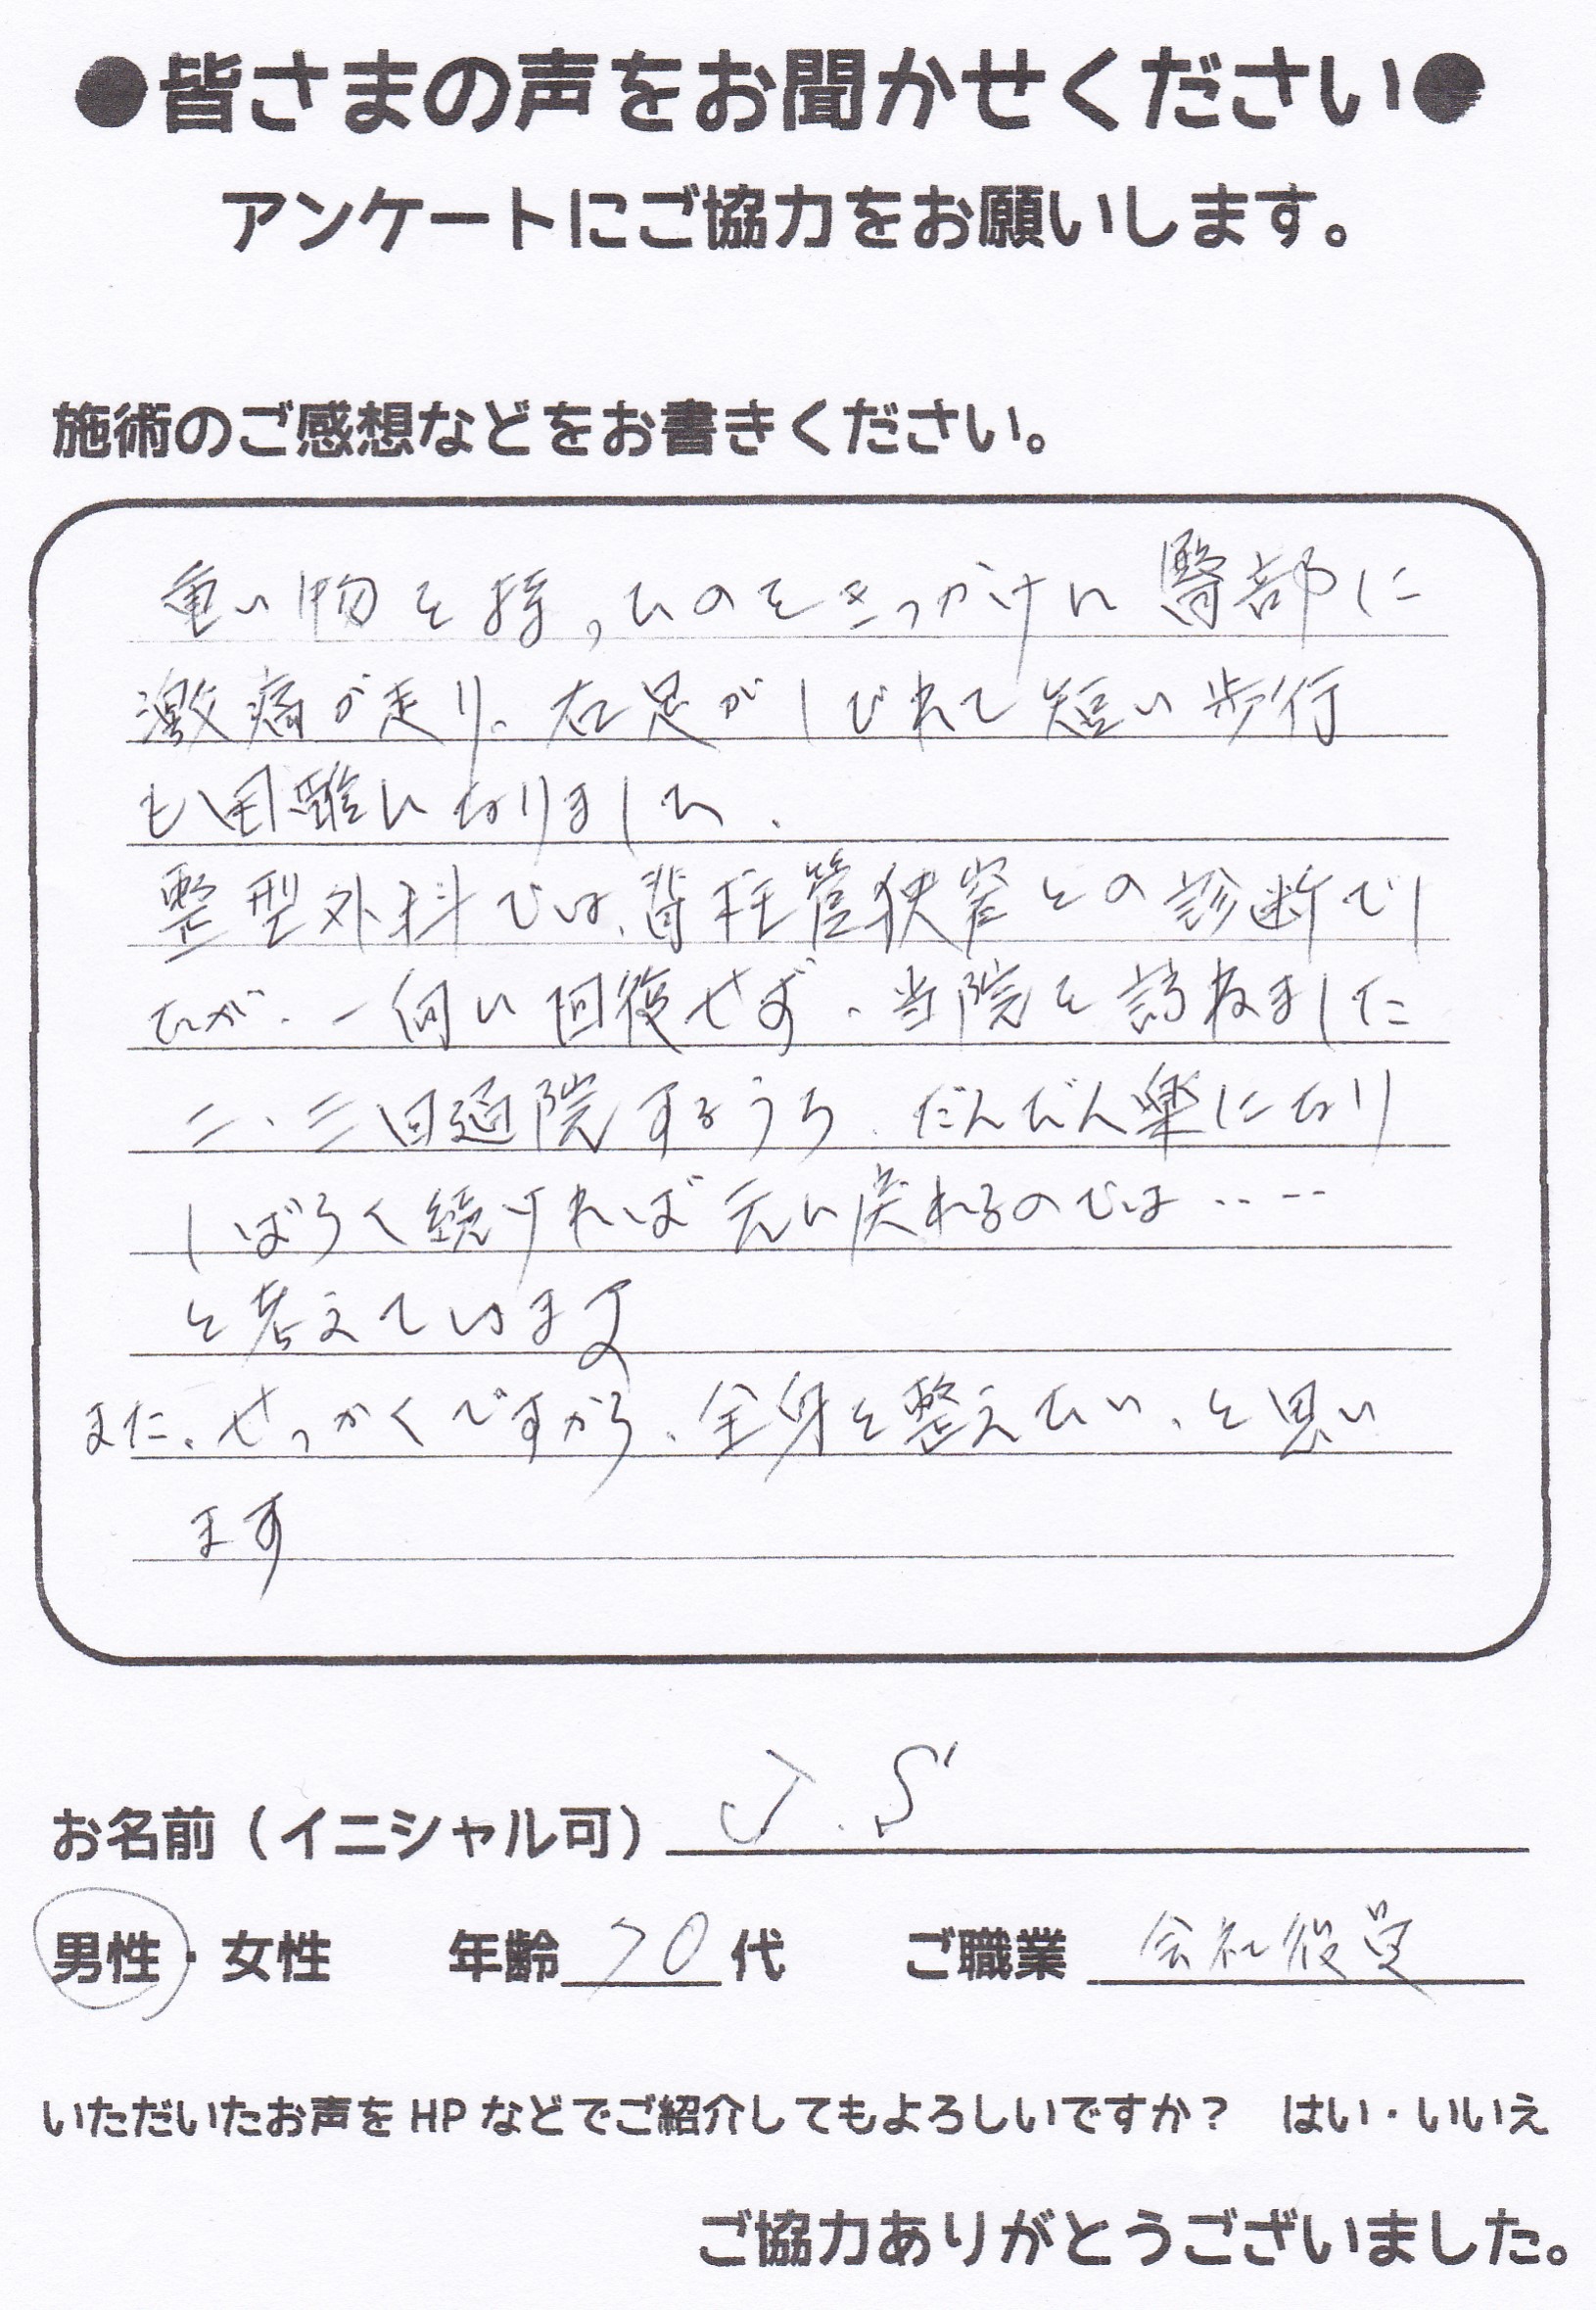 ●皆さまの声をお聞かせください●
アンケートにご協力をお願いします。
施術のご感想などをお書きください。
重い物を持ったのをきっかけに臀部に
激痛が走り、右足がしびれて短い歩行
も困難になりました.
整型外科では、脊柱管狭窄との診断でし
たが、一向に回復せず、当院を訪ねました
二、三回通院するうち、だんだん楽になり
しばらく続ければ元に戻れるのでは‥‥
と考えています
また、せっかくですから、全身を整えたい、と思い
ます
お名前（イニシャル可） J.S
男性・女性 年齢 70 代 ご職業 会社役員
いただいたお声をHPなどでご紹介してもよろしいですか？ はい・いいえ
ご協力ありがとうございました。